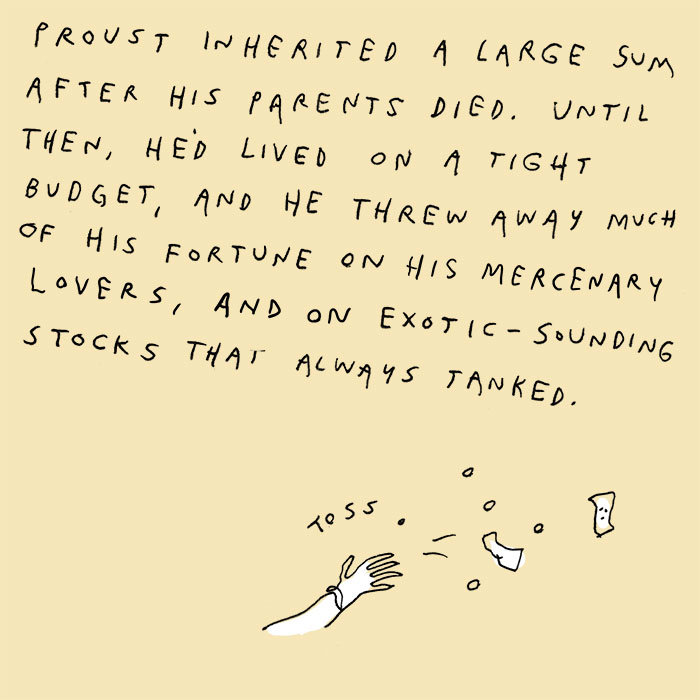 PROUST INHERITED A LARGE SUM
AFTER HIS PARENTS DIED. UNTIL
THEN, HE'D LIVED ON A TIGHT
BUDGET, AND HE THREW AWAY MUCH
OF HIS FORTUNE ON HIS MERCENARY
LOVERS, AND ON EXOTIC-SOUNDING
STOCKS THAT ALWAYS TANKED.
TOSS